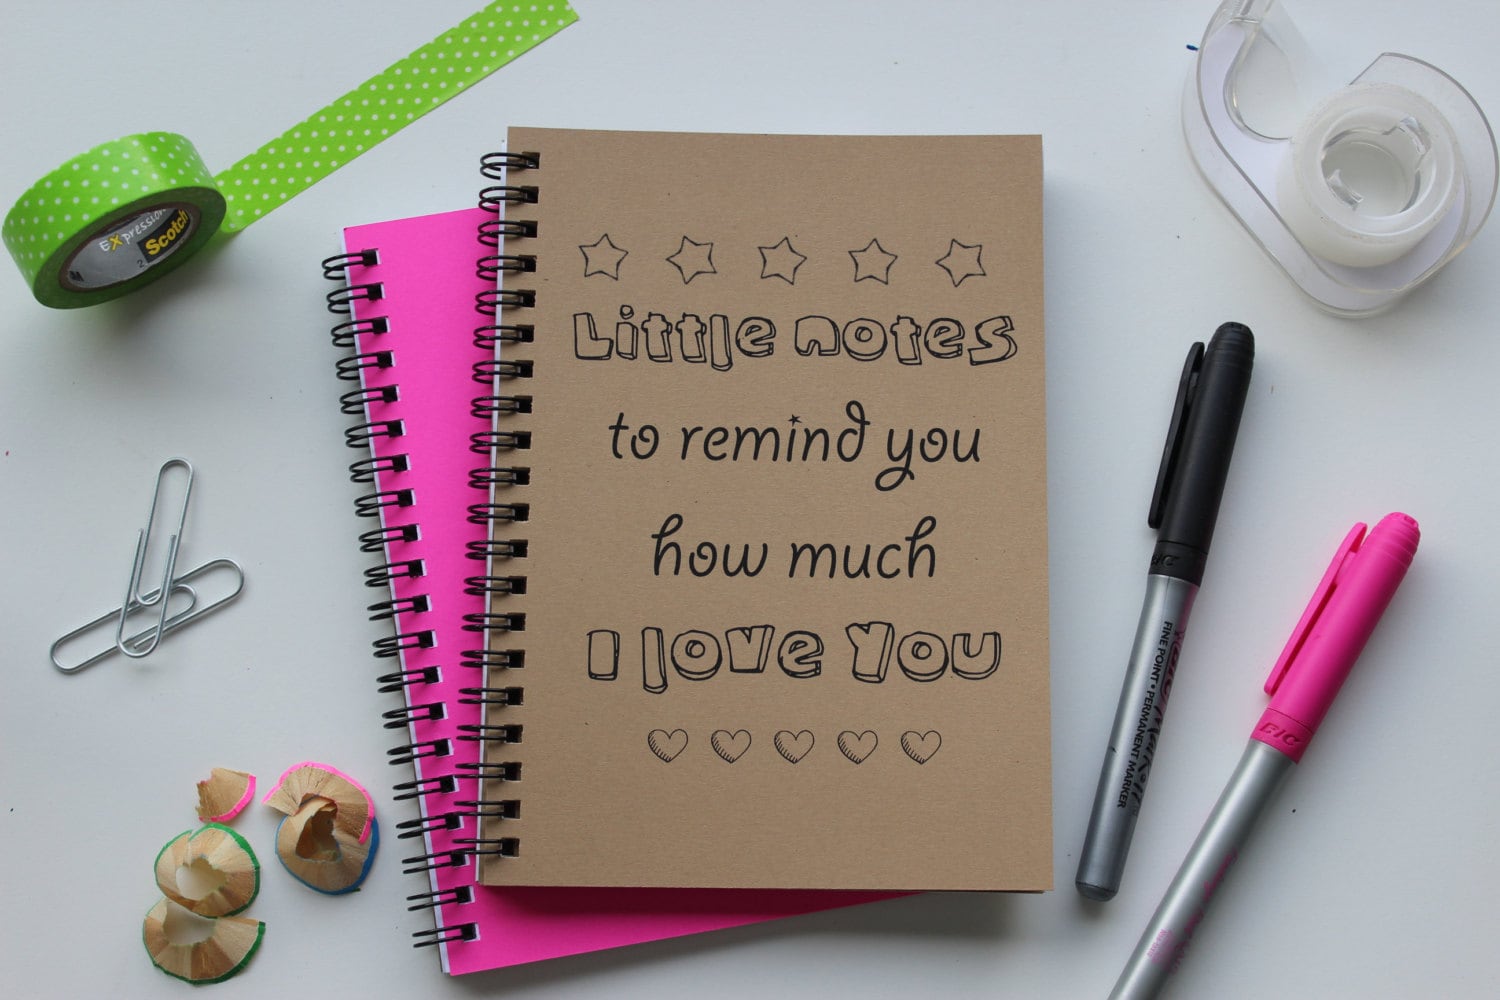 Expression
Scotch
2
3M
Little notes
to remind you
how much
I love You
BIC
FINE POINT • PERMANENT MARKER
BIC